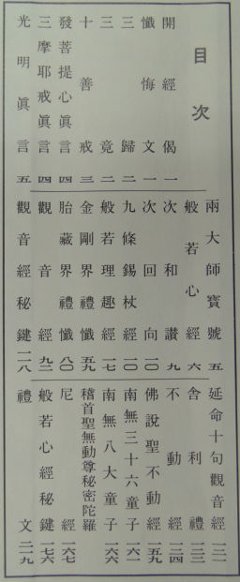 目次
開經偈 一
懺悔文 一
三歸 二
三竟 二
十善戒 三
發菩提心眞言 四
三摩耶戒眞言 四
光明眞言 五
兩大師寶號 五
般若心經 六
次和讃 九
次回向 一〇
九條錫杖經 一〇
般若理趣經 一七
金剛界禮懺 五九
胎藏界禮懺 八〇
觀音經 九二
觀音經秘鍵 一一八
延命十句觀音經 一二一
舍利禮 一二三
不動經 一二四
佛說聖不動經 一五九
南無三十六童子 一六一
南無八大童子 一六六
稽首聖無動尊秘密陀羅尼經 一六七
般若心經秘鍵 一七六
禮文 二一九